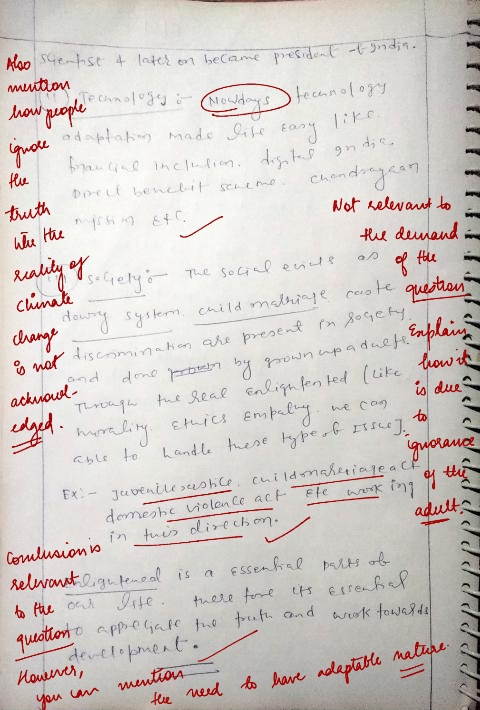 scientist & later on became president of India.
Also
mention
how people
ignore
the
truth
like the
reality of
climate
change
is not
acknowl-
edged.
(ii) Technology :- Nowdays technology
adaptation made life easy like
financial inclusion. digital India,
Direct benefit scheme. Chandrayaan
mission etc.
Not relevant to
the demand
of the
question
Explain
how it
is due
to
ignorance
of the
adult.
society :- The social evils as
dowry system. child marriage caste
discrimination are present in society.
and done by grownup adults
Through the real enlightened (like
morality. Ethics Empathy. we can
able to handle these type of issue].
Ex:- Juvenile justice. child marriage act
domestic violence act etc working
in this direction.
Conclusion is
relevant
to the
question
However,
you can mention
the need to have adaptable nature.
enlightened is a essential parts of
our life. therefore its essential
to appreciate the truth and work towards
development.